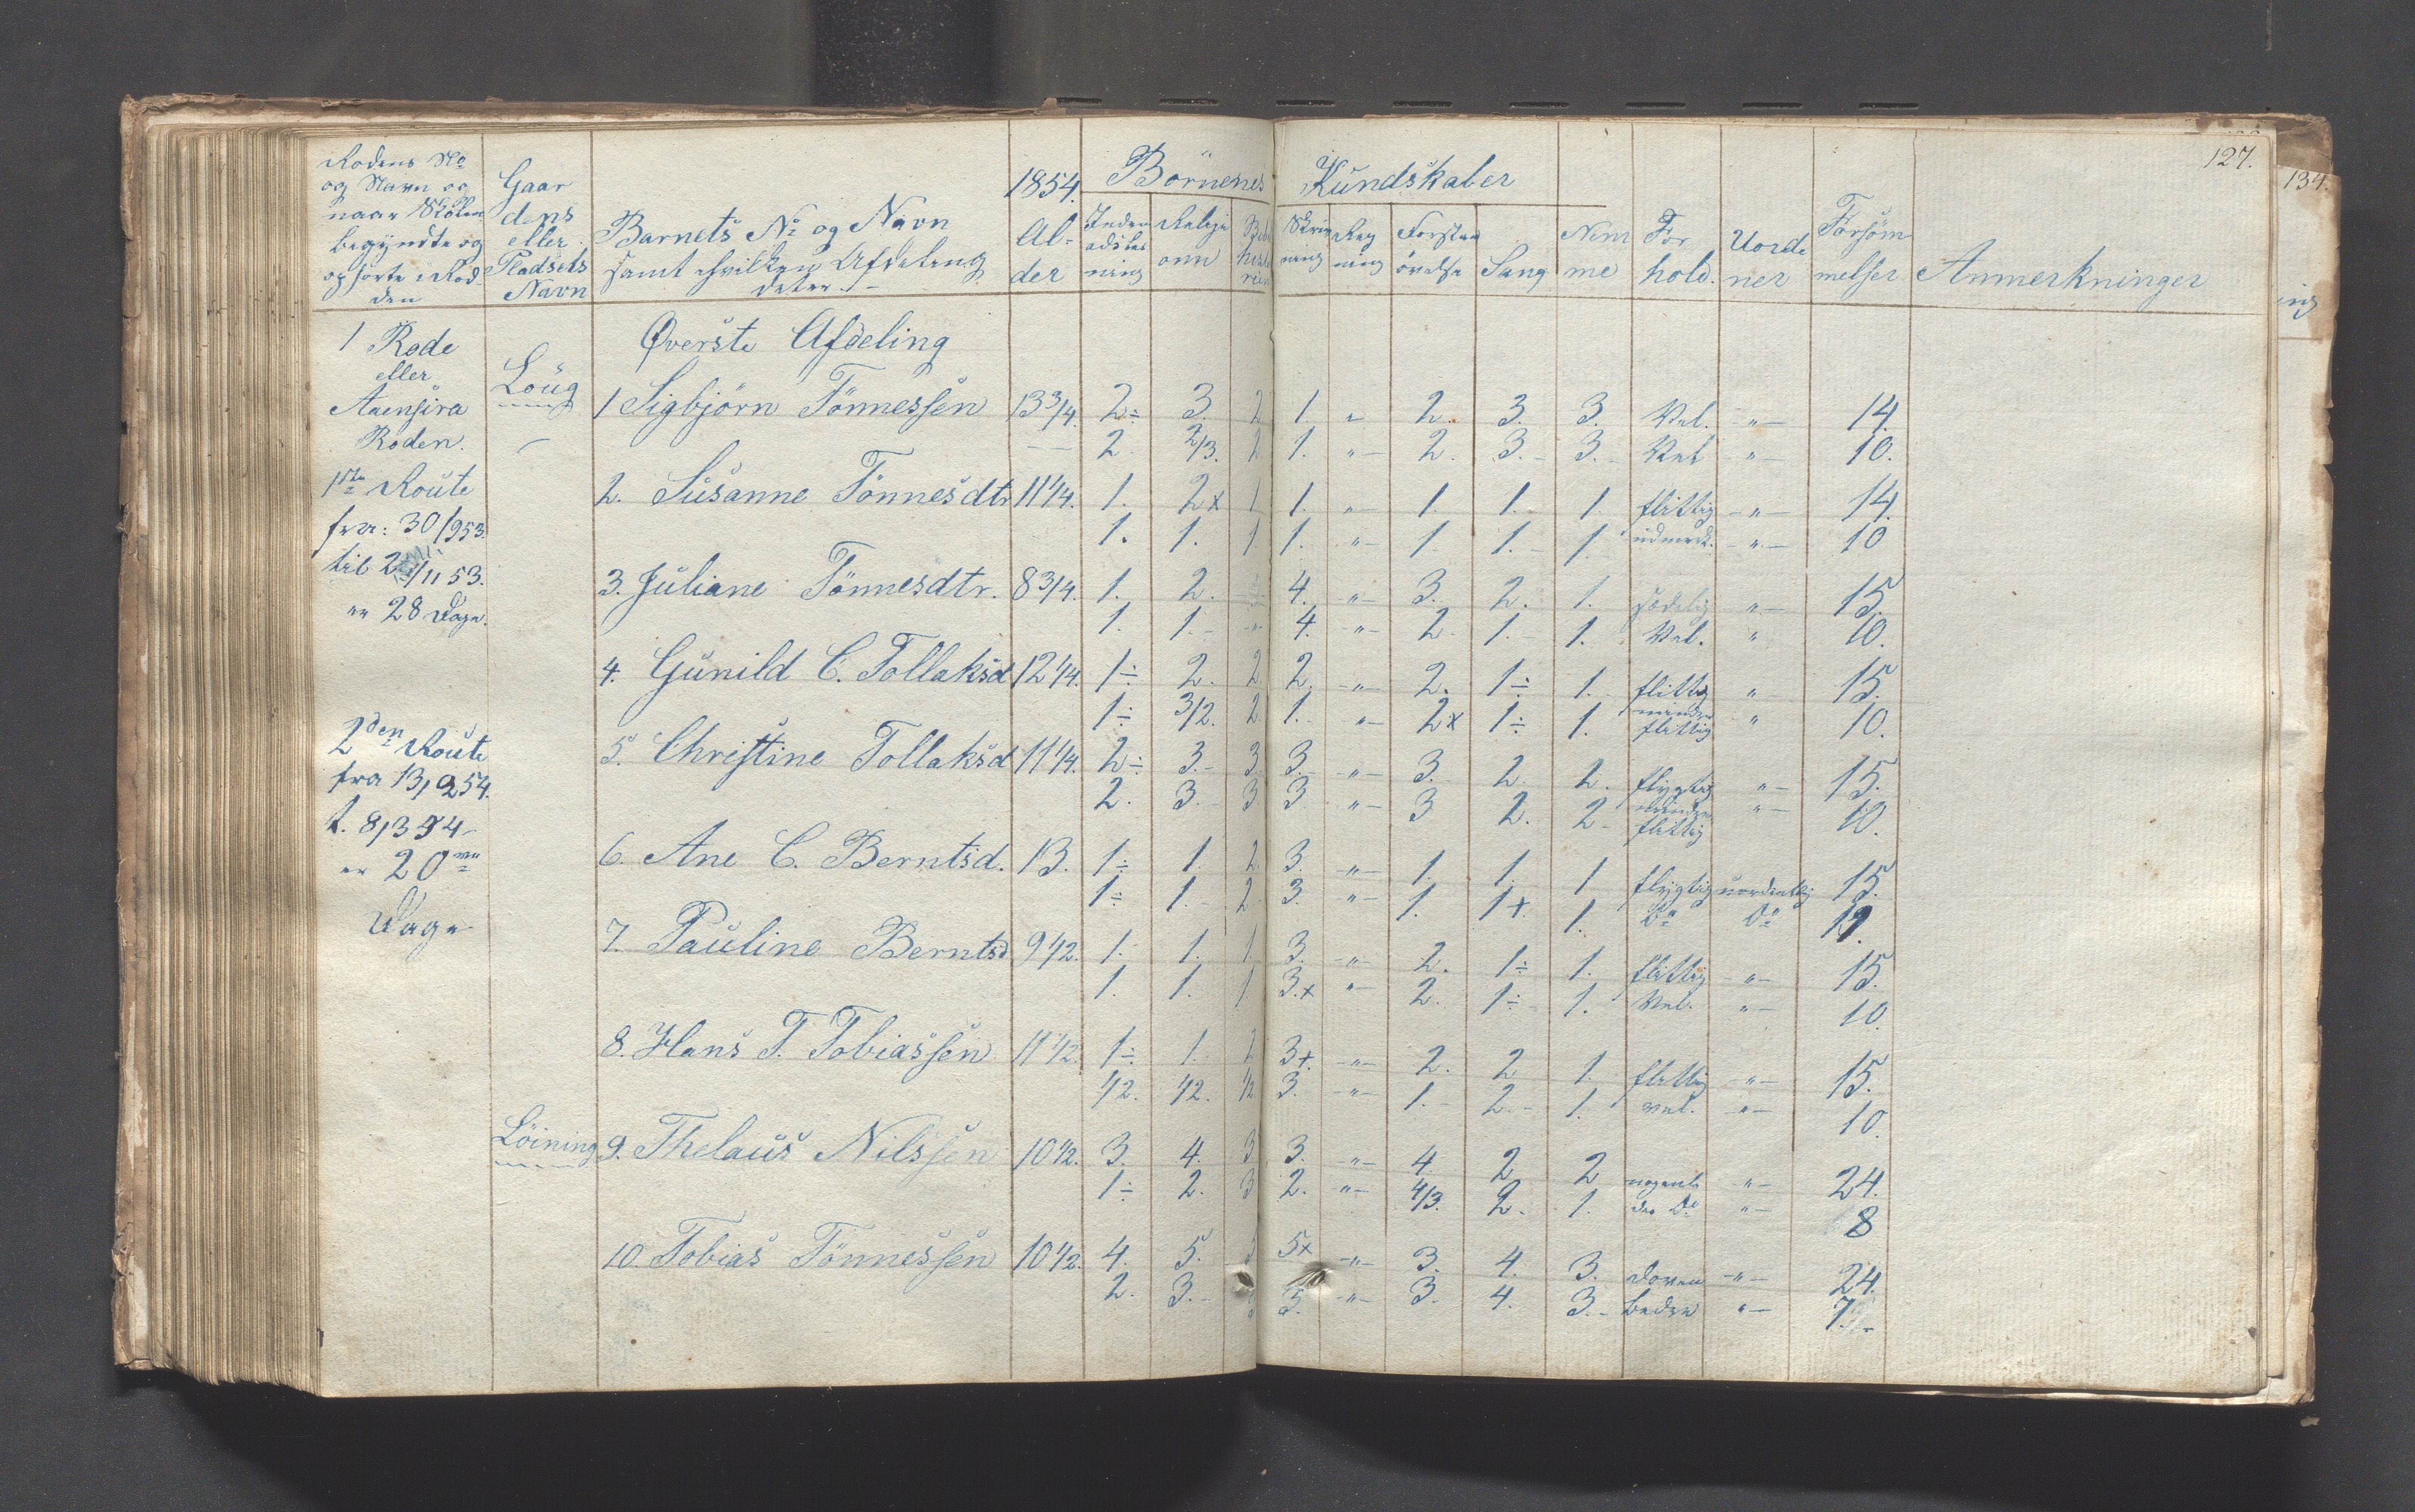 127.
134.
Rodens No Gaar 1854. Börnenes Kundskaber
og Navn og dens
naar Skolen eller Barnets No og Navn Al- Inden Religi Bibl Skriv Reg Forstan Nem For Uorde Forsöm
begyndte og Pladsets samt hvilken Afdeling der adslæs onn histo ning ning övelse Sang me hold. ner melser Anmerkninger
ophorte i Rod- Navn deter. ning rien
den
1 Rode Øverste Afdeling
eller Loug
Aaensira 1 Sigbjörn Tönnessen 13 3/4. 2÷ 3. 2 1. " 2. 3. 3. Vel. " 14.
Roden. 2 2/3. 2 1. " 2. 3. 3. Vel " 10.
1ste Route 2. Susanne Tönnesdtr 11 1/4. 1. 2x 1 1. " 1. 1. 1. flittig " 14.
fra: 30/953. 1. 1. 1 1. " 1. 1. 1. udmerk. " 10
til 2 /11 53. 3. Juliane Tönnesdtr. 8 3/4. 1. 2. 4. " 3. 2. 1. sædelig " 15.
er 28 Dage. 1. 1. " 4. " 2. 1. 1. Vel. " 10.
4. Gunild C. Tollaksd 12 1/4. 1÷ 2. 2 2. " 2. 1÷ 1. flittig " 15.
1÷ 3/2. 2 1. " 2x 1÷ 1. mindre flittig " 10.
2den Route 5. Christine Tollaksd 11 1/4. 2÷ 3. 3. 3. " 3. 2. 2. flygtig " 15.
fra 13/254. 2. 3. 3 3 " 3 2. 2 mindre flittig " 10.
t. 8/3 54 6. Ane C. Berntsd. 13. 1÷ 1. 2 3. " 1. 1. 1 flygtig uordentlig 15.
er 20 1÷ 1. 2 3. " 1. 1x. 1. Do Do
Dage 7. Pauline Berntsd 9 1/2. 1. 1. 1 3. " 2. 1÷ 1. flittig " 15.
1. 1. 1 3.x " 2. 1÷ 1. Vel. " 10.
8. Hans T. Tobiassen 11 1/2. 1÷ 1. 2 3x. " 2. 2 1. flittig " 15.
1/2. 1/2. 1/2 3. " 1. 2. 1. vel. " 10.
Löining 9. Thelaus Nilssen 10 1/2. 3. 4. 3 3. " 4. 2 2 " 24.
1÷ 2. 3 2. " 4/3. 2. 1. " 8
10. Tobias Tönnessen 10 1/2. 4. 5. 5x " 3. 4. 3. Doven " 24.
2. 3. 5. " 3. 4. 3. bedre " 7.